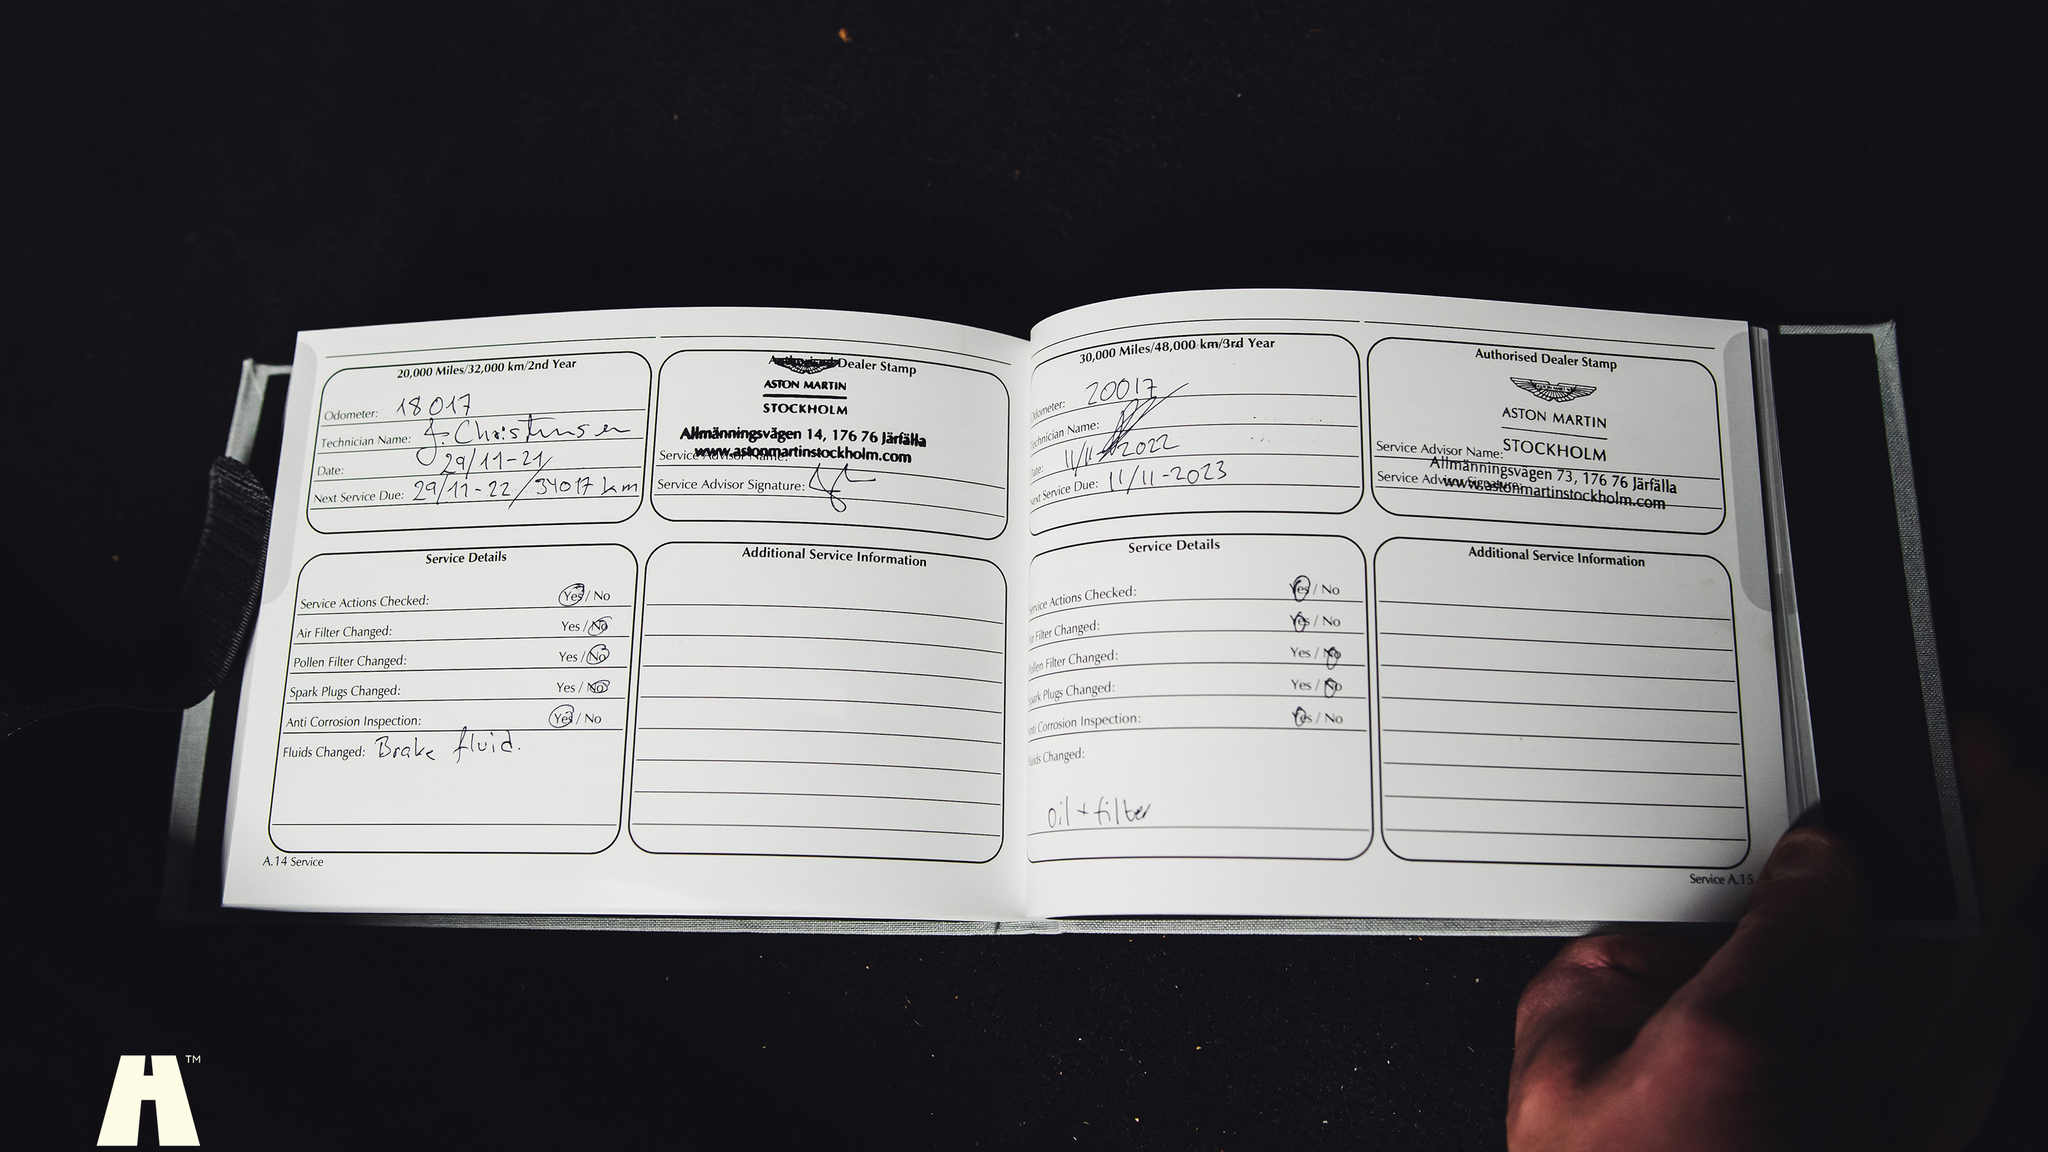 20,000 Miles/32,000 km/2nd Year
Odometer: 18017
Technician Name: J. Christensen
Date: 29/11-21
Next Service Due: 29/11-22 / 34017 km
Authorised Dealer Stamp
ASTON MARTIN
STOCKHOLM
Allmänningsvägen 14, 176 76 Järfälla
www.astonmartinstockholm.com
Service Advisor Name:
Service Advisor Signature:
Service Details
Service Actions Checked: Yes / No
Air Filter Changed: Yes / No
Pollen Filter Changed: Yes / No
Spark Plugs Changed: Yes / No
Anti Corrosion Inspection: Yes / No
Fluids Changed: Brake fluid.
Additional Service Information
A.14 Service
30,000 Miles/48,000 km/3rd Year
Odometer: 20017
Technician Name:
Date: 11/11-2022
Next Service Due: 11/11-2023
Authorised Dealer Stamp
ASTON MARTIN
STOCKHOLM
Service Advisor Name:
Allmänningsvägen 73, 176 76 Järfälla
Service Advisor Signature:
www.astonmartinstockholm.com
Service Details
Service Actions Checked: Yes / No
Air Filter Changed: Yes / No
Pollen Filter Changed: Yes / No
Spark Plugs Changed: Yes / No
Anti Corrosion Inspection: Yes / No
Fluids Changed:
oil + filter
Additional Service Information
Service A.15
TM